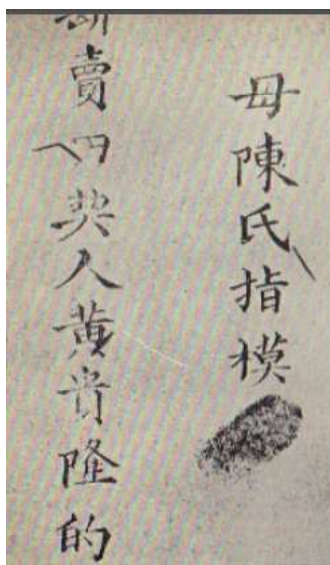 母陳氏指模
賣契人黃貴隆的